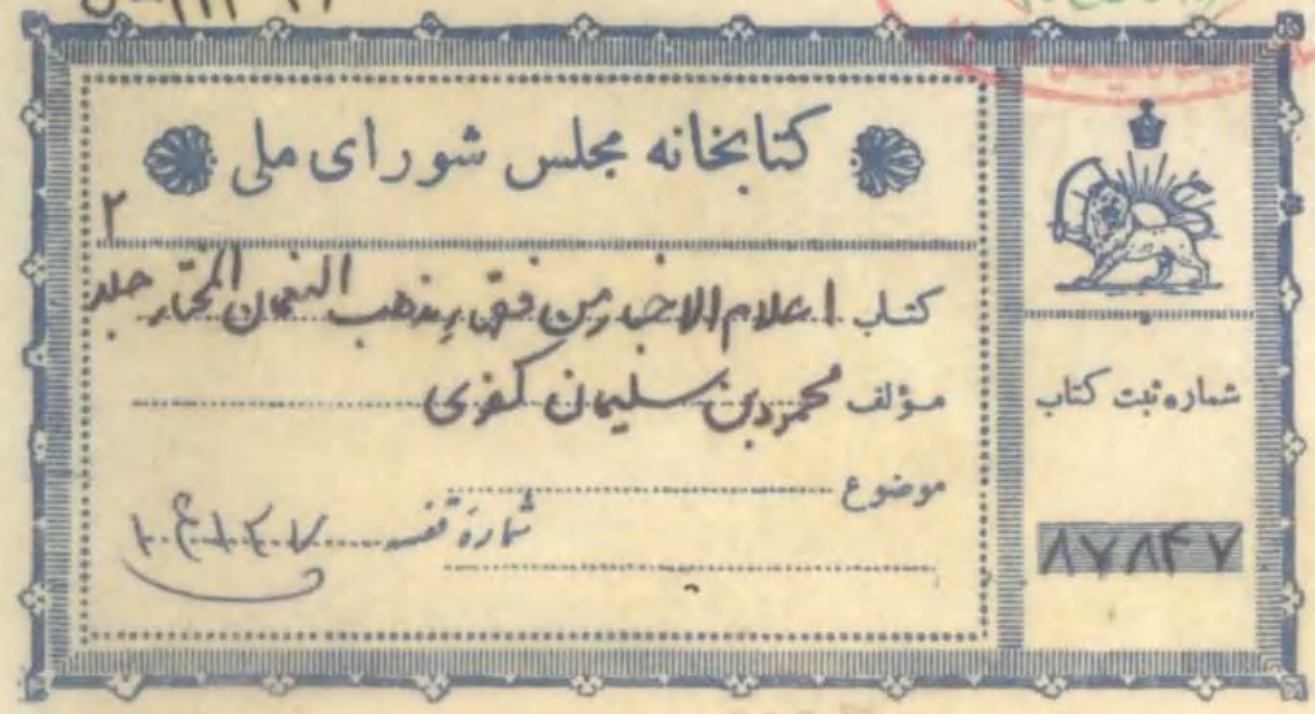 کتابخانه مجلس شورای ملی
کتاب اعلام الاخیار من فقهاء مذهب النعمان المختار جلد ۲
مؤلف محمود بن سلیمان کفوی
موضوع
شماره قفسه
شماره ثبت کتاب
۸۷۸۴۷